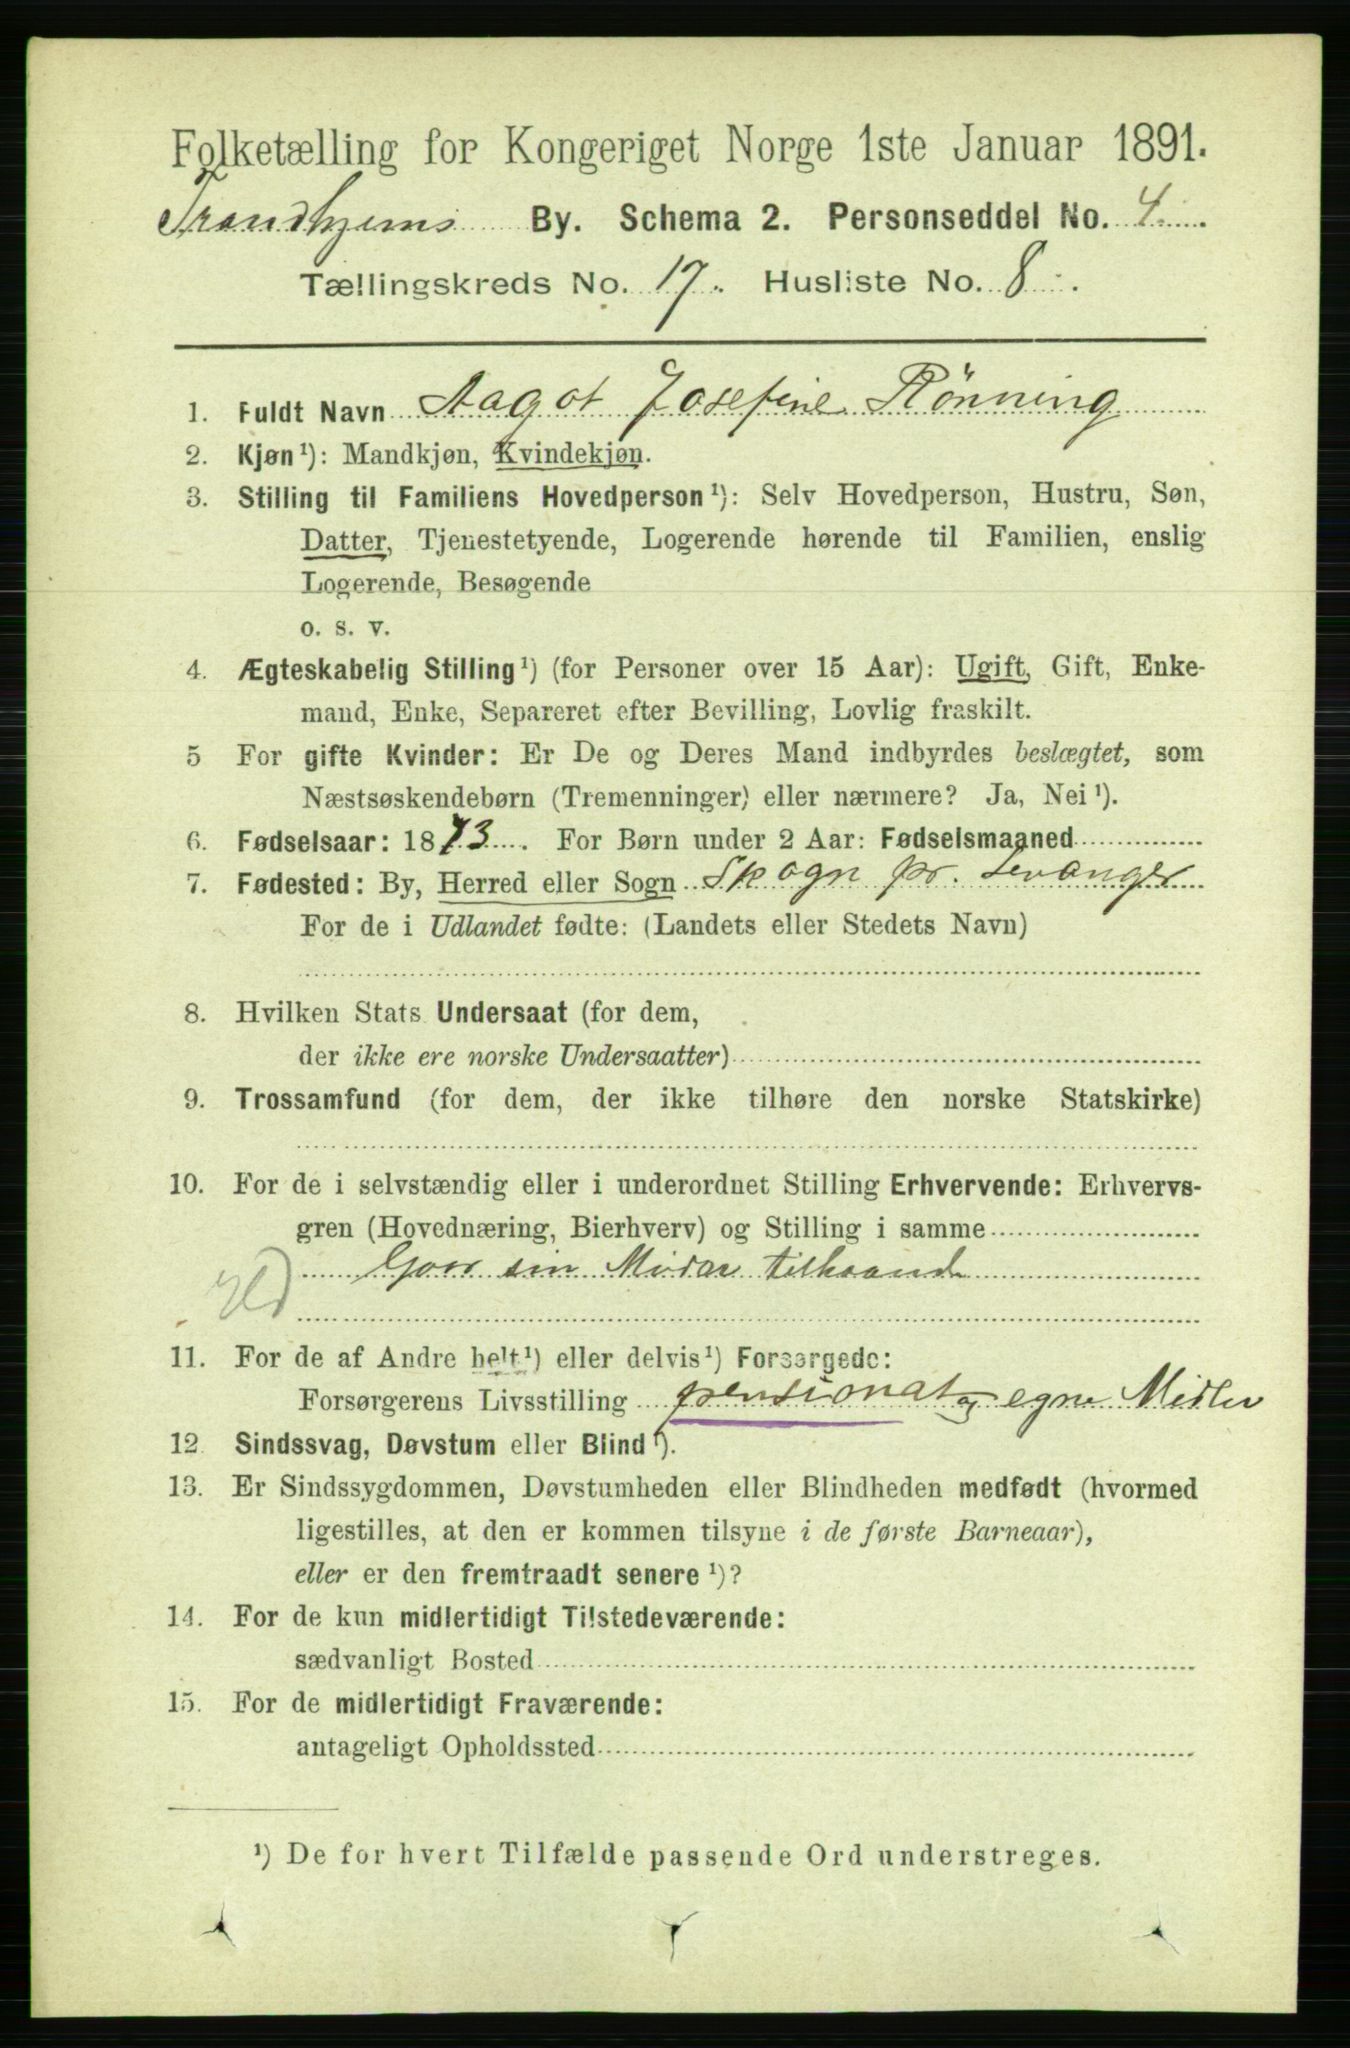 Folketælling for Kongeriget Norge 1ste Januar 1891.
Trondhjems By. Schema 2. Personseddel No. 4
Tællingskreds No. 17. Husliste No. 8.
1. Fuldt Navn Aagot Josefine Rönning
2. Kjøn¹): Mandkjøn, Kvindekjøn.
3. Stilling til Familiens Hovedperson¹): Selv Hovedperson, Hustru, Søn,
Datter, Tjenestetyende, Logerende hørende til Familien, enslig
Logerende, Besøgende
o. s. v.
4. Ægteskabelig Stilling¹) (for Personer over 15 Aar): Ugift, Gift, Enke-
mand, Enke, Separeret efter Bevilling, Lovlig fraskilt.
5 For gifte Kvinder: Er De og Deres Mand indbyrdes beslægtet, som
Næstsøskendebørn (Tremenninger) eller nærmere? Ja, Nei¹).
6. Fødselsaar: 1873. For Børn under 2 Aar: Fødselsmaaned
7. Fødested: By, Herred eller Sogn Skogn pr. Levanger
For de i Udlandet fødte: (Landets eller Stedets Navn)
8. Hvilken Stats Undersaat (for dem,
der ikke ere norske Undersaatter)
9. Trossamfund (for dem, der ikke tilhøre den norske Statskirke)
10. For de i selvstændig eller i underordnet Stilling Erhvervende: Erhvervs-
gren (Hovednæring, Bierhverv) og Stilling i samme
Gaar sin Moder tilhaande
11. For de af Andre helt¹) eller delvis¹) Forsørgede:
Forsørgerens Livsstilling pensionat og egne Midler
12. Sindssvag, Døvstum eller Blind¹).
13. Er Sindssygdommen, Døvstumheden eller Blindheden medfødt (hvormed
ligestilles, at den er kommen tilsyne i de første Barneaar),
eller er den fremtraadt senere¹)?
14. For de kun midlertidigt Tilstedeværende:
sædvanligt Bosted
15. For de midlertidigt Fraværende:
antageligt Opholdssted
¹) De for hvert Tilfælde passende Ord understreges.